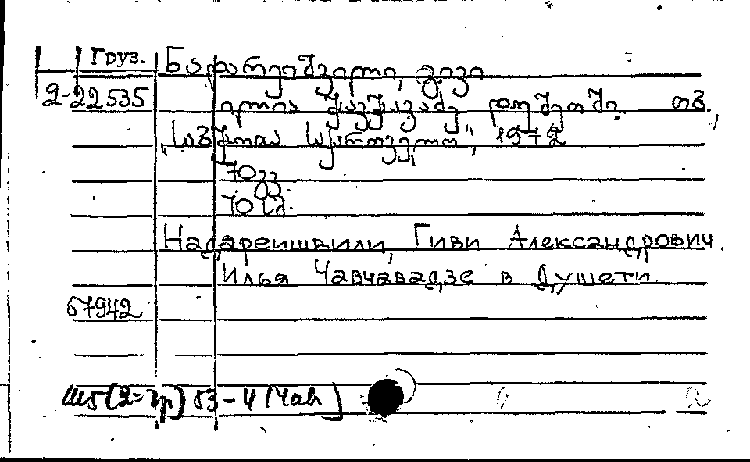 Груз. ნადარეიშვილი, გივი
2-22535 ილია ჭავჭავაძე დუშეთში. თბ.,
„საბჭოთა საქართველო", 1972
70 გვ.
Надареишвили, Гиви Александрович.
Илья Чавчавадзе в Душети.
67942
Ш5(2=гр)53-4(Чав)